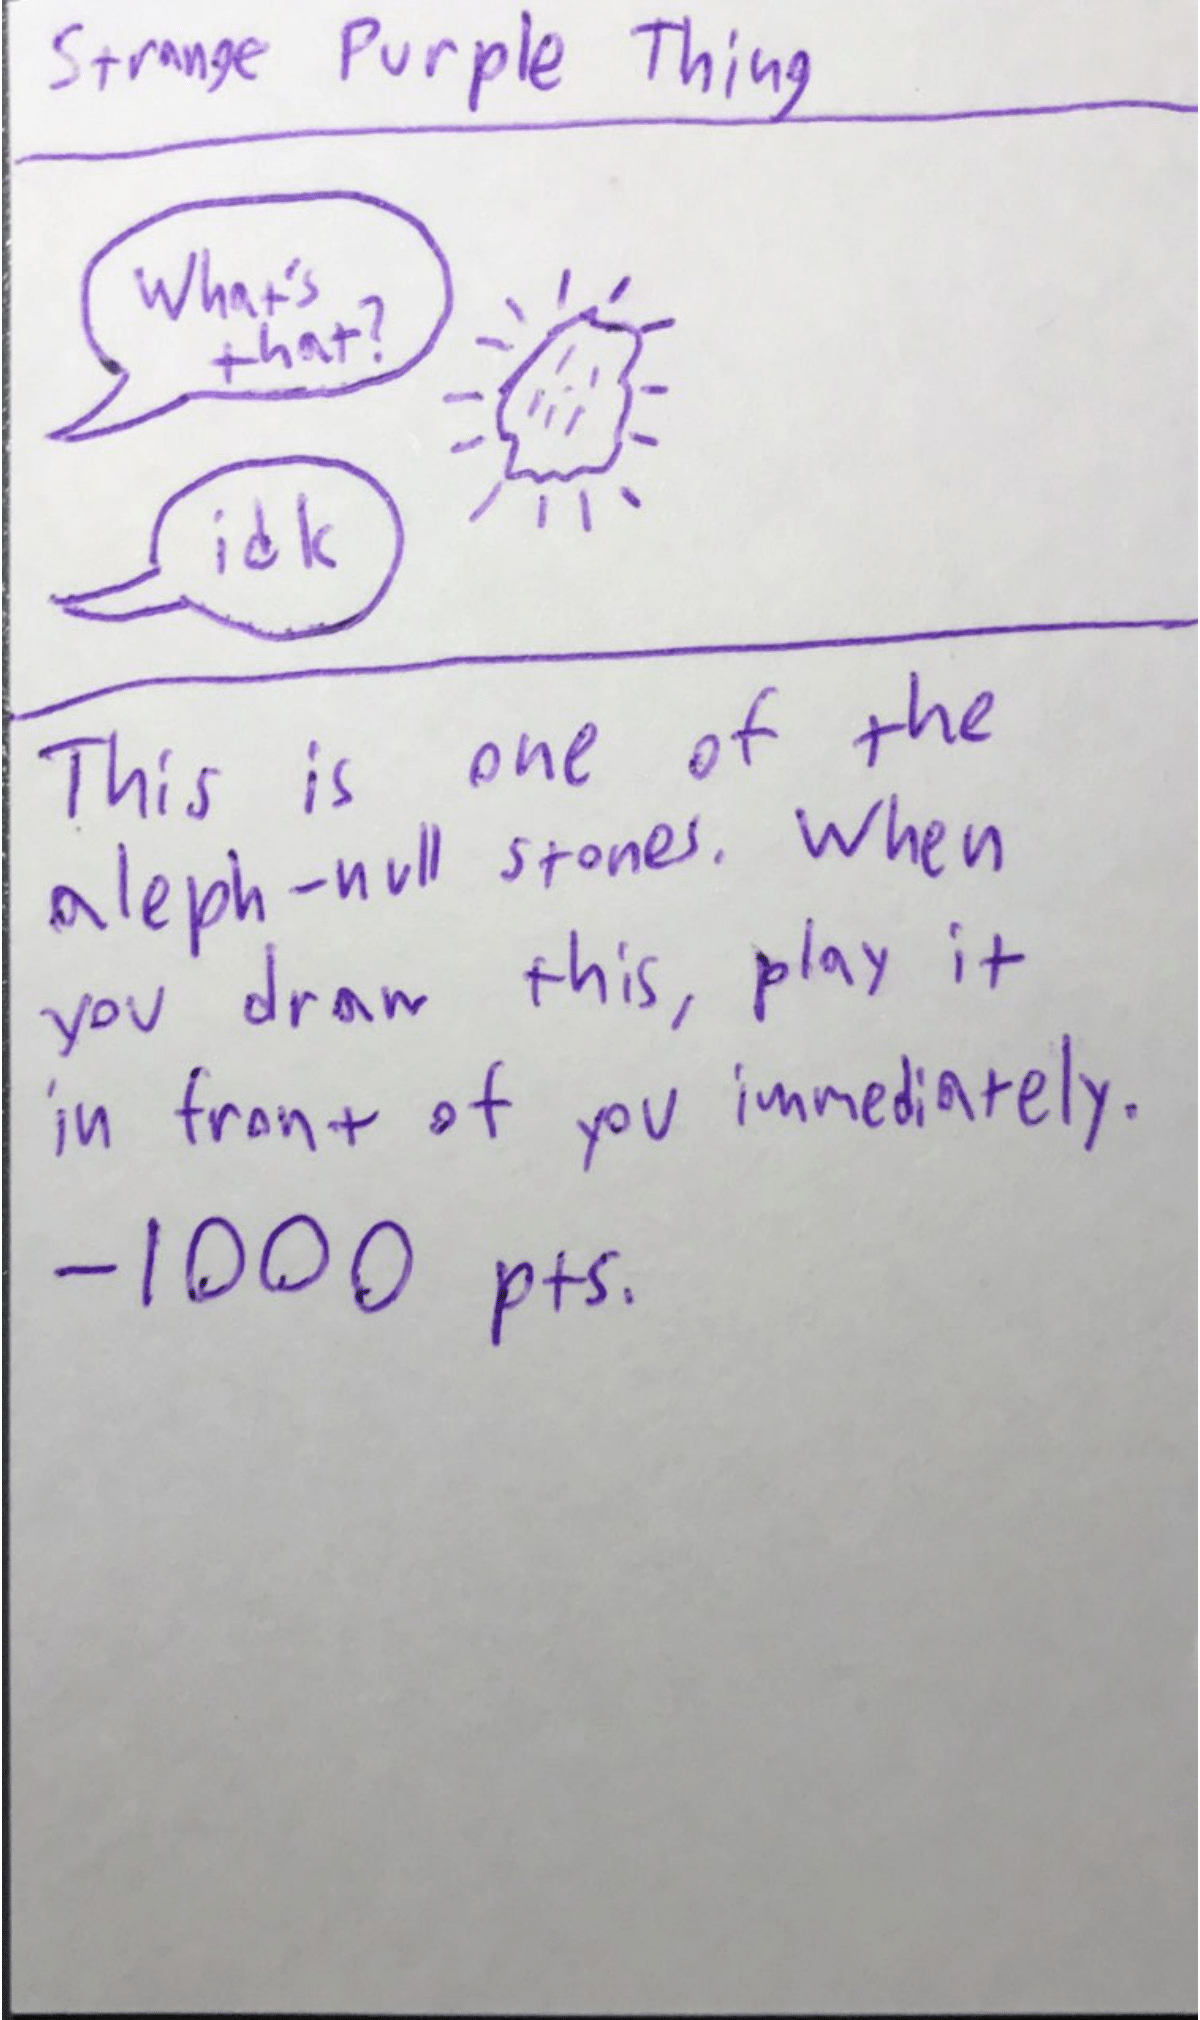 Strange Purple Thing
What's
that?
idk
This is one of the
aleph-null stones. When
you draw this, play it
in front of you immediately.
-1000 pts.